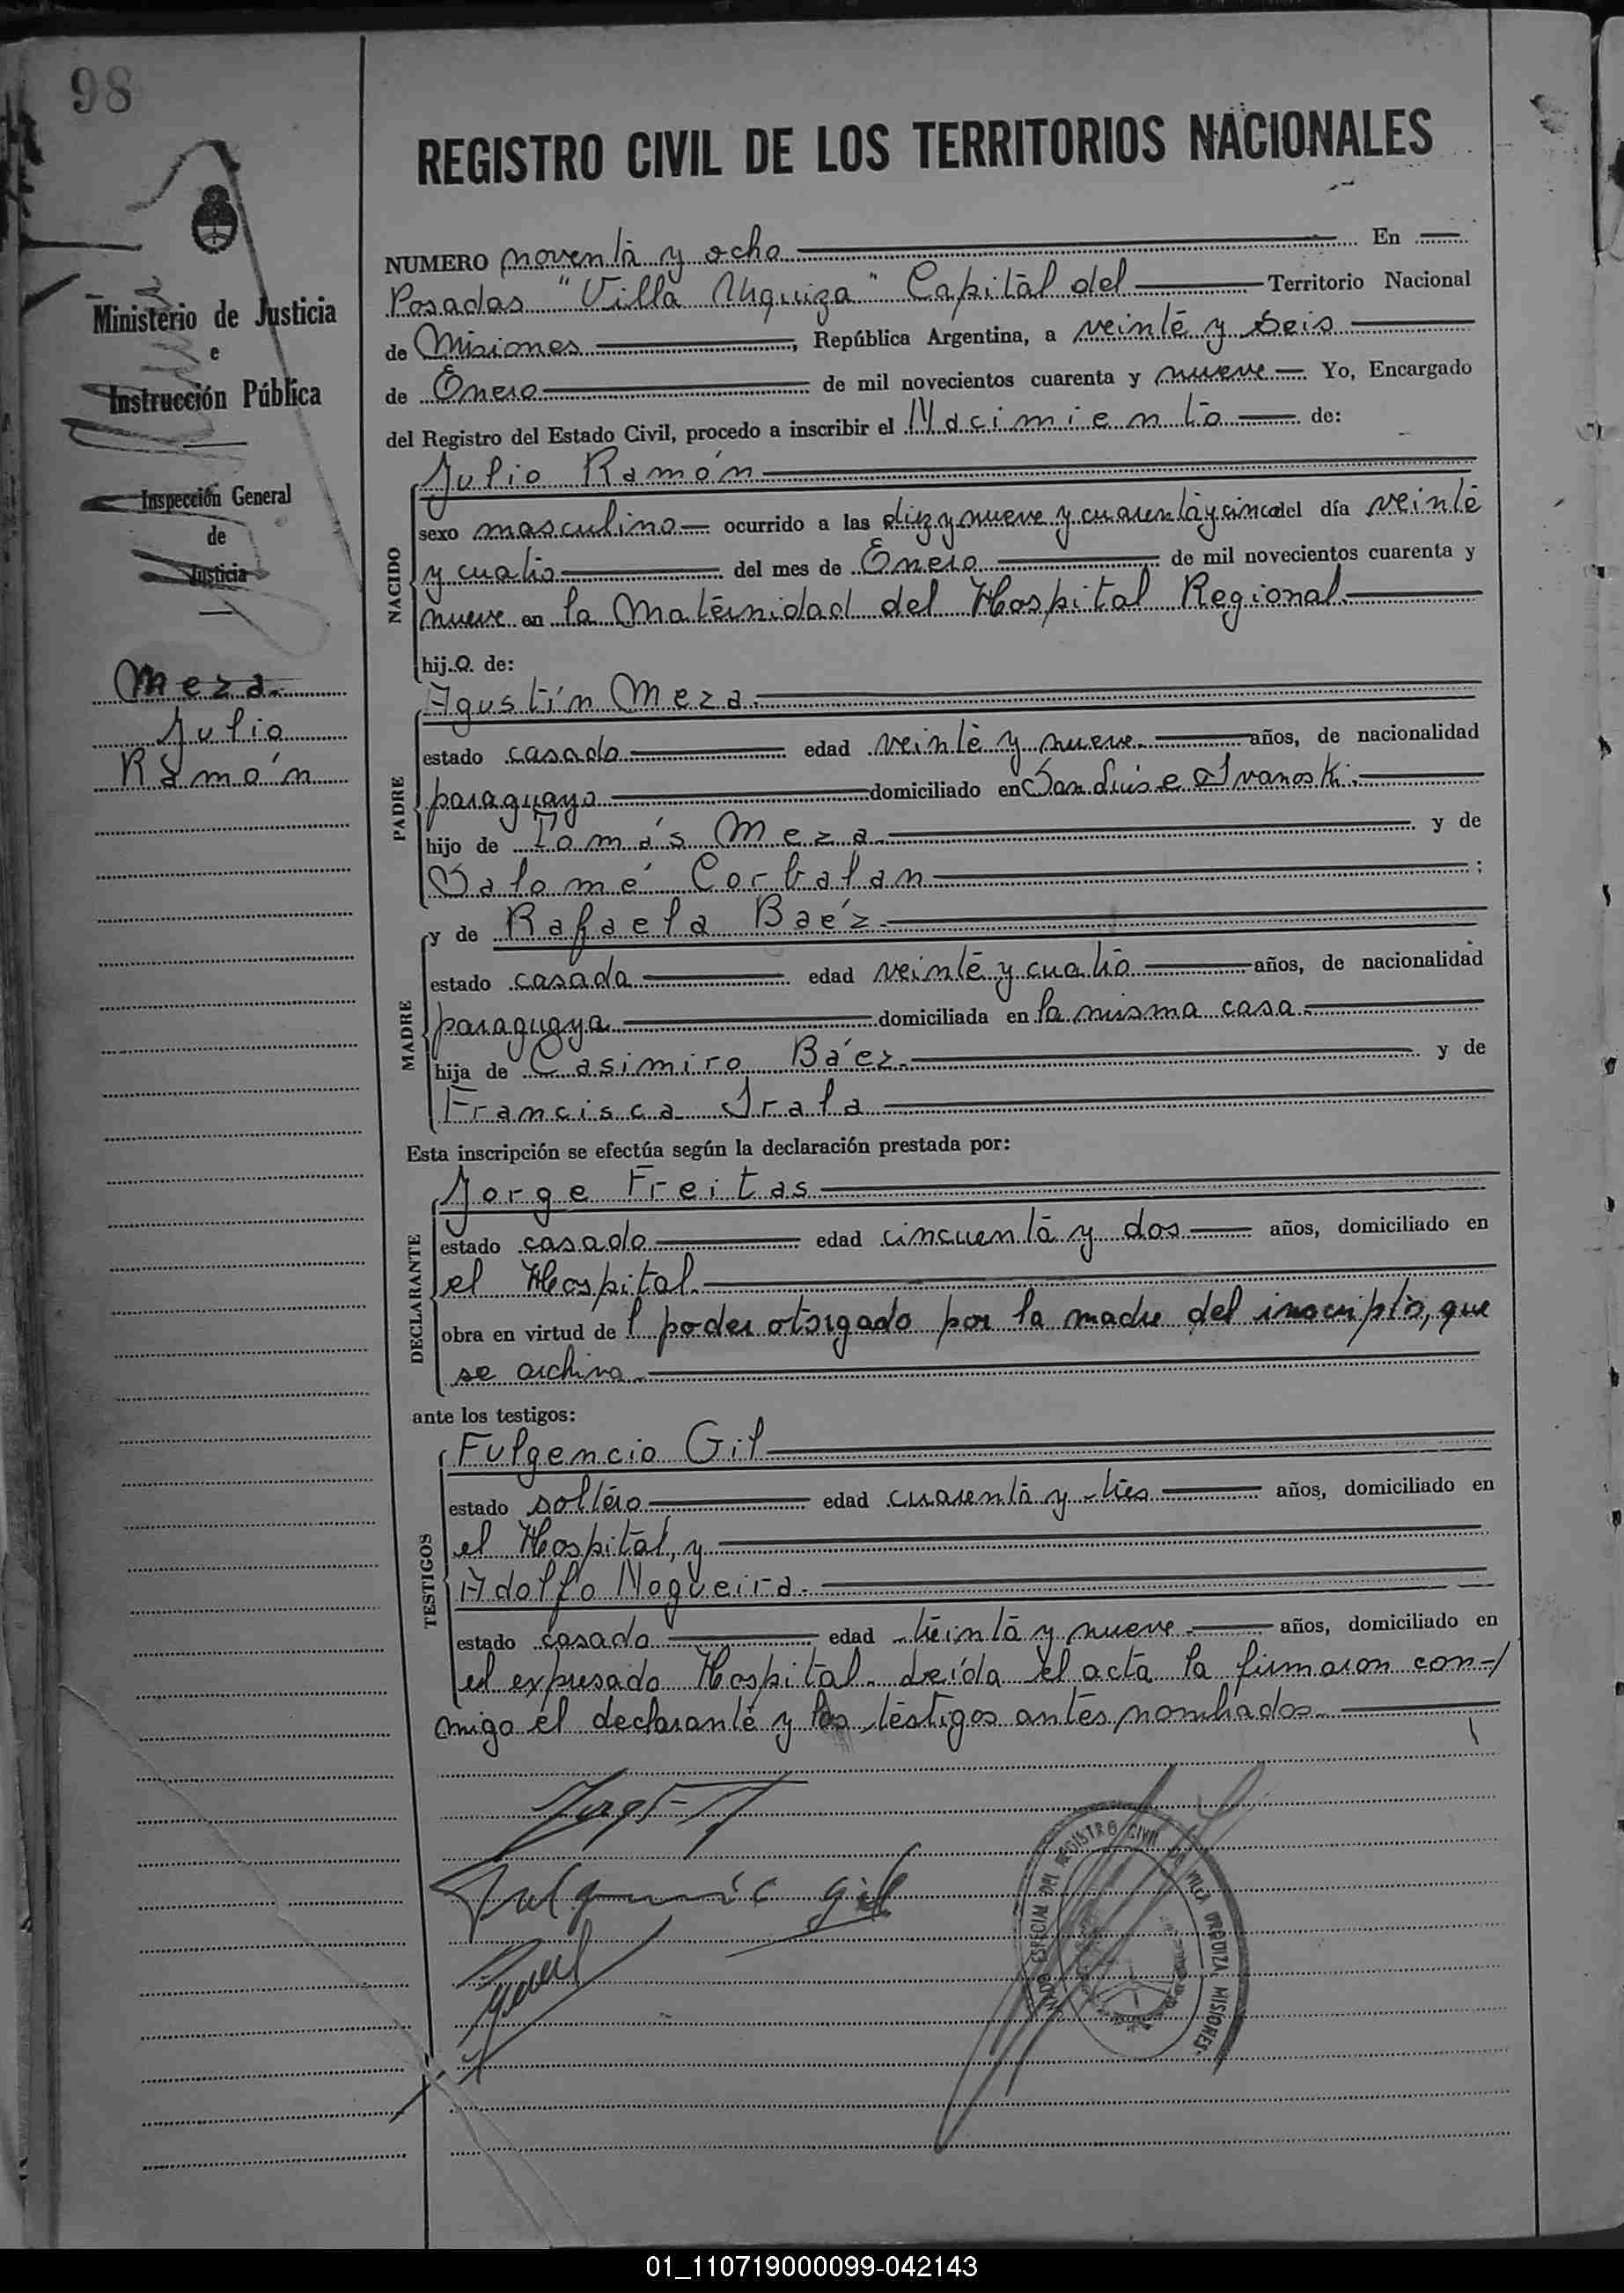 98
REGISTRO CIVIL DE LOS TERRITORIOS NACIONALES
Ministerio de Justicia
e
Instrucción Pública
Inspección General
de
Justicia
Meza
Julio
Ramón
NUMERO noventa y ocho En
Posadas "Villa Urquiza" Capital del Territorio Nacional
de Misiones, República Argentina, a veinte y seis
de Enero de mil novecientos cuarenta y nueve Yo, Encargado
del Registro del Estado Civil, procedo a inscribir el Nacimiento de:
NACIDO
Julio Ramón
sexo masculino ocurrido a las diez y nueve y cuarenta y cinco del día veinte
y cuatro del mes de Enero de mil novecientos cuarenta y
nueve en la Maternidad del Hospital Regional.
hij.o. de:
PADRE
Agustín Meza.
estado casado edad veinte y nueve. años, de nacionalidad
paraguayo domiciliado en San Luis e Ivanoski.
hijo de Tomás Meza. y de
Salomé Corbalan ;
MADRE
y de Rafaela Baéz.
estado casada edad veinte y cuatro años, de nacionalidad
paraguaya domiciliada en la misma casa.
hija de Casimiro Báez. y de
Francisca Irala
Esta inscripción se efectúa según la declaración prestada por:
DECLARANTE
Jorge Freitas
estado casado edad cincuenta y dos años, domiciliado en
el Hospital.
obra en virtud de l poder otorgado por la madre del inscripto, que
se archiva.
ante los testigos:
TESTIGOS
Fulgencio Gil
estado soltero edad cuarenta y tres años, domiciliado en
el Hospital, y
Adolfo Nogueira.
estado casado edad treinta y nueve. años, domiciliado en
el expresado Hospital. Leída el acta la firmaron con-
migo el declarante y los testigos antes nombrados.
Fulgencio Gil
ESPECIAL DEL REGISTRO CIVIL DE VILLA URQUIZA MISIONES
01_110719000099-042143